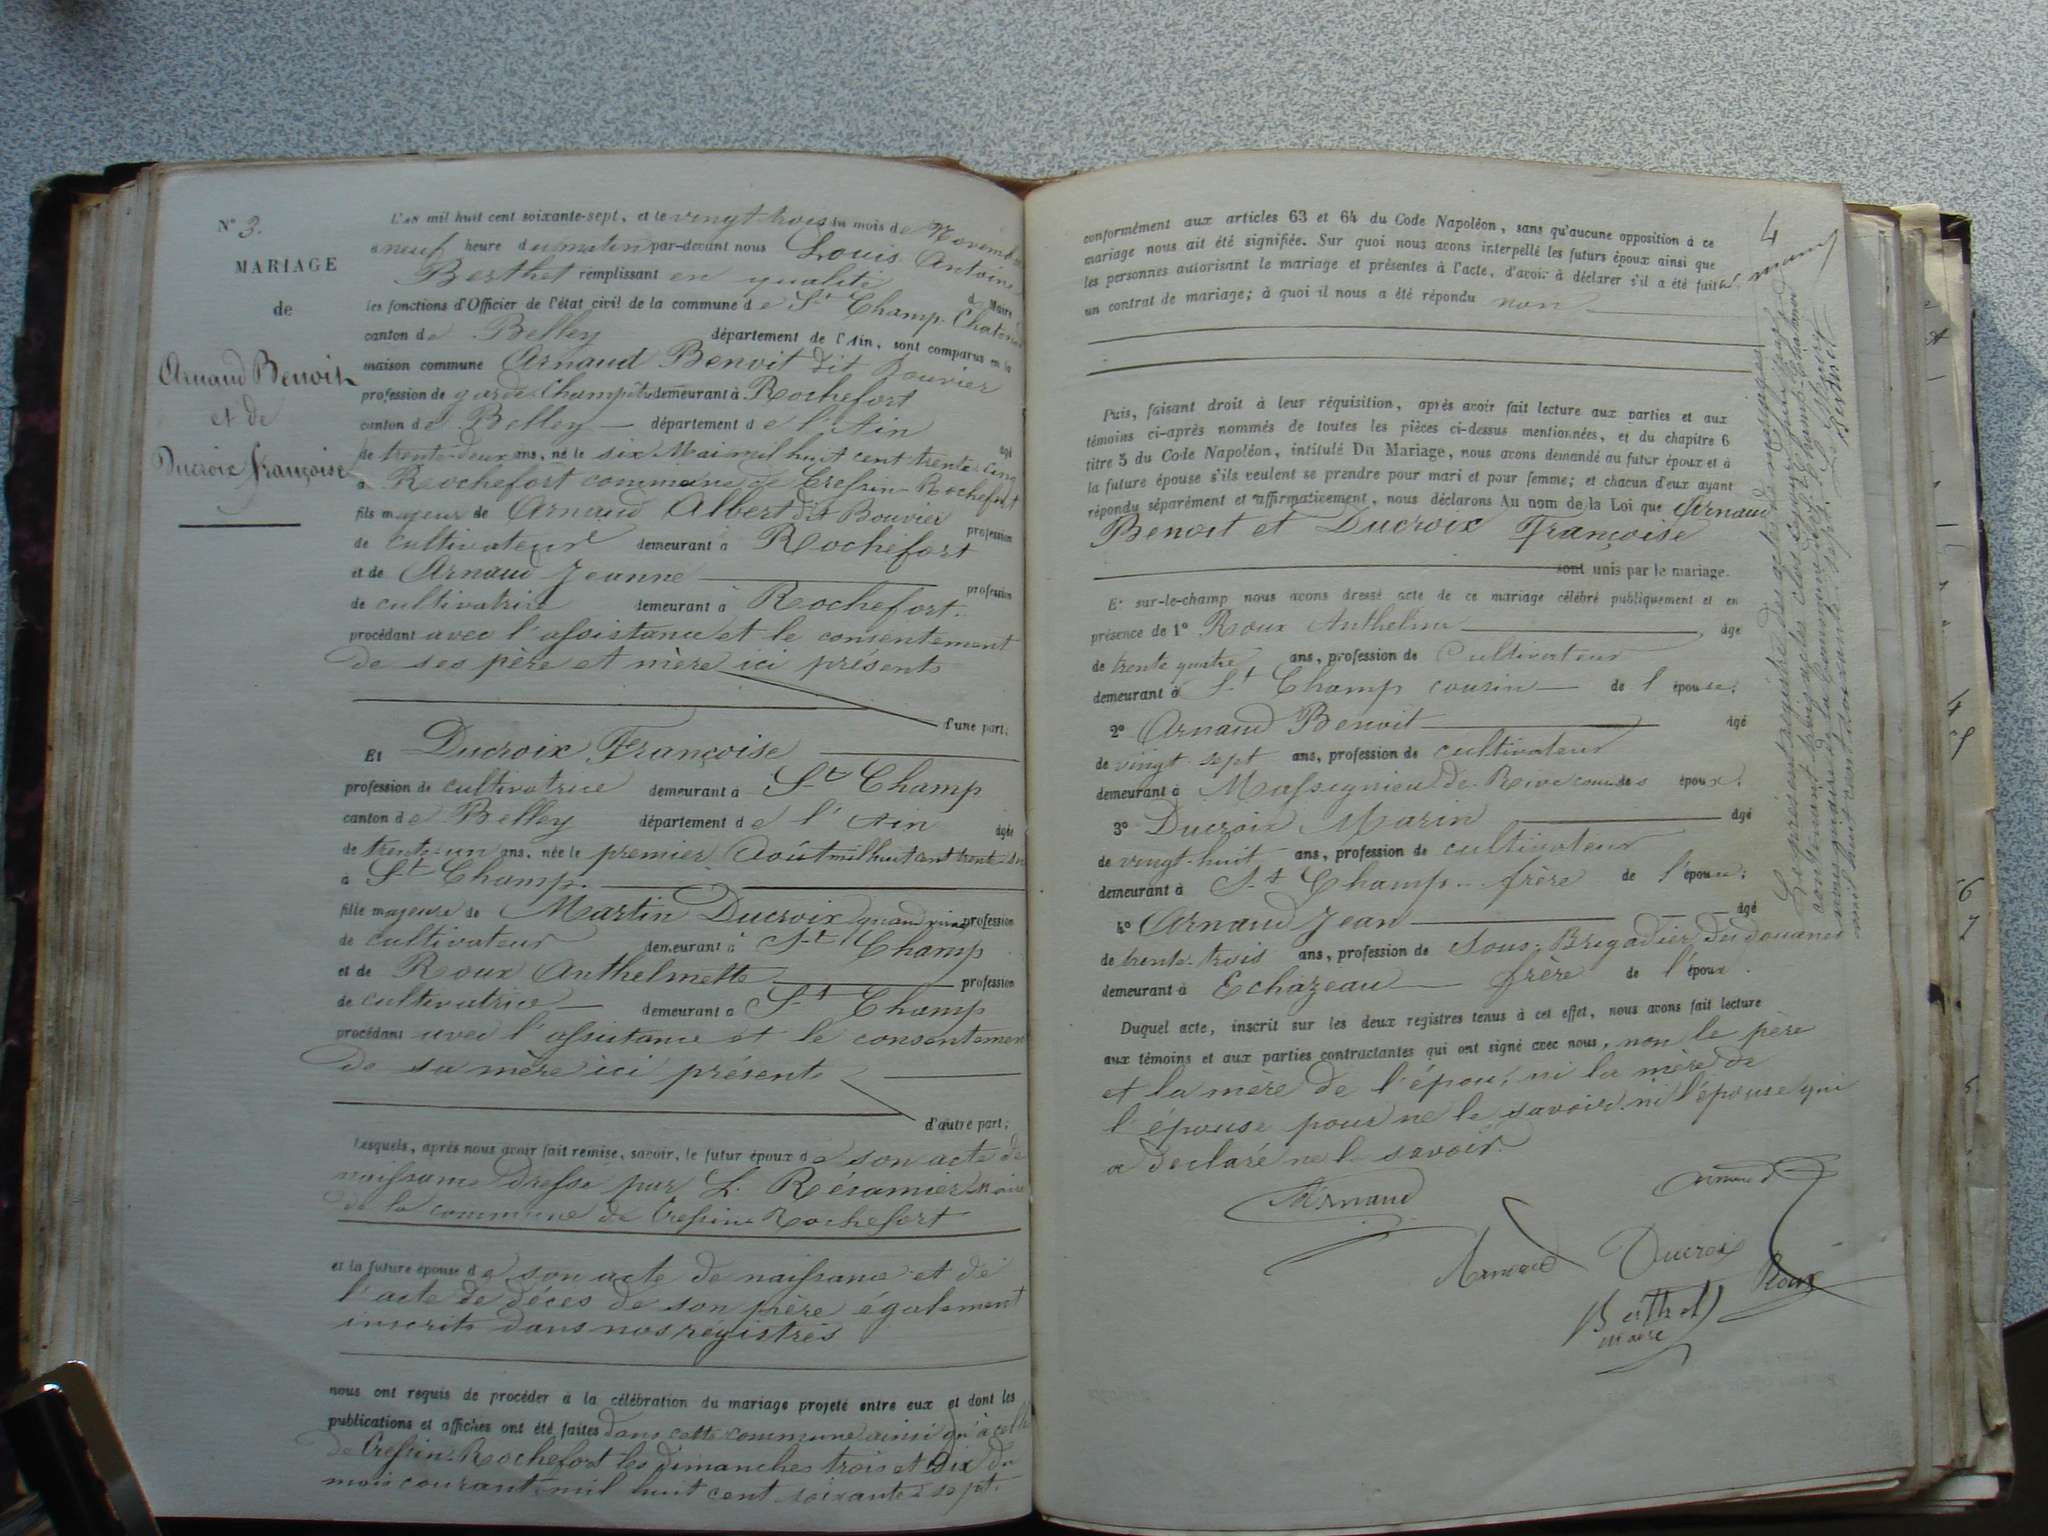 N° 3.
MARIAGE
de
Arnaud Benoit
et de
Ducroix Françoise
L'an mil huit cent soixante-sept, et le vingt trois du mois de Novembre
a neuf heure du matin par-devant nous Louis Antoine
Berthet remplissant en qualité de Maire
les fonctions d'Officier de l'état civil de la commune de St Champ-Chatonod
canton de Belley département de l'Ain, sont comparus en la
maison commune Arnaud Benoit dit Bouvier
profession de garde champêtre demeurant à Rochefort
canton de Belley département de l'Ain âgé
de trente-deux ans, né le six Mai mil huit cent trente cinq
à Rochefort commune de Cressin-Rochefort
fils majeur de Arnaud Albert dit Bouvier profession
de cultivateur demeurant à Rochefort
et de Arnaud Jeanne profession
de cultivatrice demeurant à Rochefort.
procédant avec l'assistance et le consentement
de ses père et mère ici présents
d'une part;
Et Ducroix Françoise
profession de cultivatrice demeurant à St Champ
canton de Belley département de l'Ain âgée
de trente-un ans, née le premier Août mil huit cent trente-six
à St Champ.
fille majeure de Martin Ducroix quand vivait profession
de cultivateur demeurant à St Champ
et de Roux Anthelmette profession
de cultivatrice demeurant à St Champ
procédant avec l'assistance et le consentement
de sa mère ici présente
d'autre part;
Lesquels, après nous avoir fait remise, savoir, le futur époux de son acte de
naissance dressé par L. maire
de la commune de Cressin Rochefort
et la future épouse de son acte de naissance et de
l'acte de décès de son père également
inscrits dans nos régistres
nous ont requis de procéder à la célébration du mariage projeté entre eux et dont les
publications et affiches ont été faites dans cette commune ainsi qu'à celle
de Cressin-Rochefort les dimanches trois et dix du
mois courant mil huit cent soixante sept.
4
conformément aux articles 63 et 64 du Code Napoléon, sans qu'aucune opposition à ce
mariage nous ait été signifiée. Sur quoi nous avons interpellé les futurs époux ainsi que
les personnes autorisant le mariage et présentes à l'acte, d'avoir à déclarer s'il a été fait
un contrat de mariage; à quoi il nous a été répondu non
Puis, faisant droit à leur réquisition, après avoir fait lecture aux parties et aux
témoins ci-après nommés de toutes les pièces ci-dessus mentionnées, et du chapitre 6
titre 5 du Code Napoléon, intitulé Du Mariage, nous avons demandé au futur époux et à
la future épouse s'ils veulent se prendre pour mari et pour femme; et chacun d'eux ayant
répondu séparément et affirmativement, nous déclarons Au nom de la Loi que Arnaud
Benoit et Ducroix Françoise
sont unis par le mariage.
Et sur-le-champ nous avons dressé acte de ce mariage célébré publiquement et en
présence de 1° Roux Anthelme âgé
de trente quatre ans, profession de Cultivateur
demeurant à St Champ cousin de l'épouse;
2° Arnaud Benoit âgé
de vingt sept ans, profession de cultivateur
demeurant à Massignieu de Rives époux;
3° Ducroix Marin âgé
de vingt-huit ans, profession de cultivateur
demeurant à St Champ frère de l'épouse;
4° Arnaud Jean âgé
de trente-trois ans, profession de Sous-Brigadier des douanes
demeurant à Echazeau frère de l'époux.
Duquel acte, inscrit sur les deux registres tenus à cet effet, nous avons fait lecture
aux témoins et aux parties contractantes qui ont signé avec nous, non le père
et la mère de l'époux, ni la mère de
l'épouse pour ne le savoir ni l'épouse qui
a déclaré ne le savoir.
Arnaud
Arnaud
Arnaud Ducroix Roux
Berthet
maire
Le présent registre des actes de mariages
contenant trois actes clos et par nous
maire de la commune de St Champ-Chatonod
mil huit cent soixante sept. Le Maire
Berthet